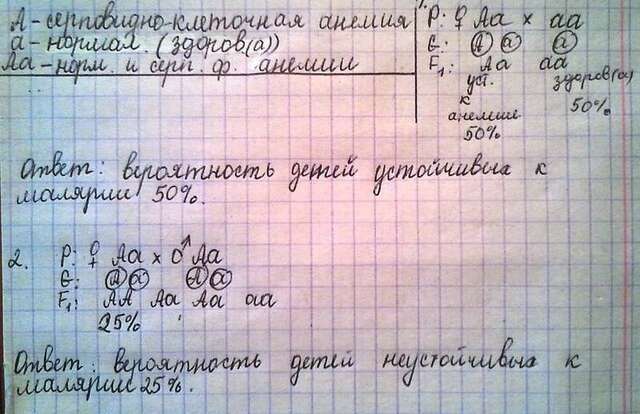 А - серповидно-клеточная анемия
а - нормал. (здоров(а))
Аа - норм. и серп. ф. анемии
Р: ♀ Аа × аа
G: А а а
F₁: Аа аа
уст. здоров(а)
к 50%
анемии
50%
Ответ: вероятность детей устойчивых к
малярии 50%.
2. Р: ♀ Аа × ♂ Аа
G: А а А а
F₁: АА Аа Аа аа
25%
Ответ: вероятность детей неустойчивых к
малярии 25%.